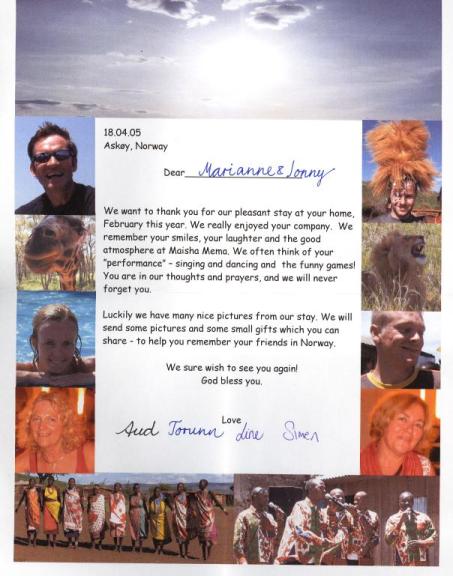 18.04.05
Askøy, Norway
Dear Marianne & Jonny
We want to thank you for our pleasant stay at your home,
February this year. We really enjoyed your company. We
remember your smiles, your laughter and the good
atmosphere at Maisha Mema. We often think of your
"performance" – singing and dancing and the funny games!
You are in our thoughts and prayers, and we will never
forget you.
Luckily we have many nice pictures from our stay. We will
send some pictures and some small gifts which you can
share - to help you remember your friends in Norway.
We sure wish to see you again!
God bless you.
Love
Aud Torunn Line Simen